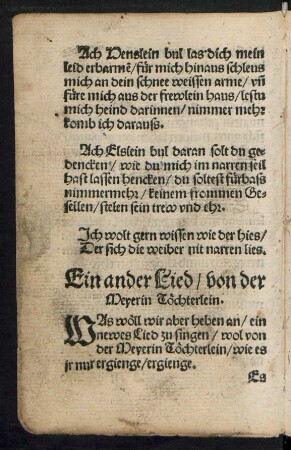 Ach Venslein bul las dich mein
leid erbarmē / für mich hinaus schleus
mich an dein schnee weissen arme / vn̄
füre mich aus der frewlein haus / lestu
mich heind darinnen / nimmer mehr
komb ich darauss.
Ach Elslein bul daran solt du ge-
dencken / wie du mich im narren seil
hast lassen hencken / du soltest fürbass
nimmermehr / keinem frommen Ge-
sellen / stelen sein trew vnd ehr.
Ich wolt gern wissen wie der hies /
Der sich die weiber nit narren lies.
Ein ander Lied / von der
Meyerin Töchterlein.
WAs wöll wir aber heben an / ein
newes Lied zu singen / wol von
der Meyerin Töchterlein / wie es
jr nur ergienge / ergienge.
Es